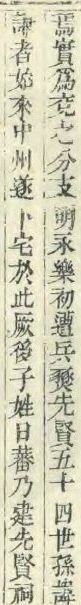 焉實爲兗之分支明永樂初遭兵燹先賢五十四世孫諱
謙者始來中州遂卜宅於此厥後子姓日蕃乃建先賢祠